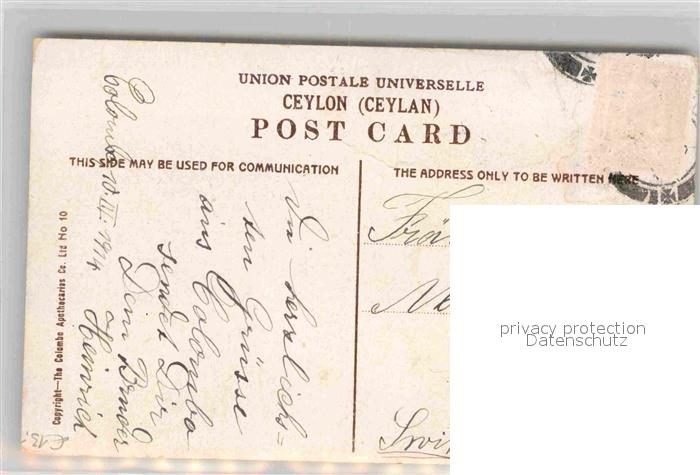 UNION POSTALE UNIVERSELLE
CEYLON (CEYLAN)
POST CARD
THIS SIDE MAY BE USED FOR COMMUNICATION
THE ADDRESS ONLY TO BE WRITTEN HERE
Colombo 10. III. 1914
herzlich=
sten Grüsse
aus Colombo
sendet Dir
Dein Bruder
Heinrich
Copyright—The Colombo Apothecaries Co. Ltd No 10
privacy protection
Datenschutz